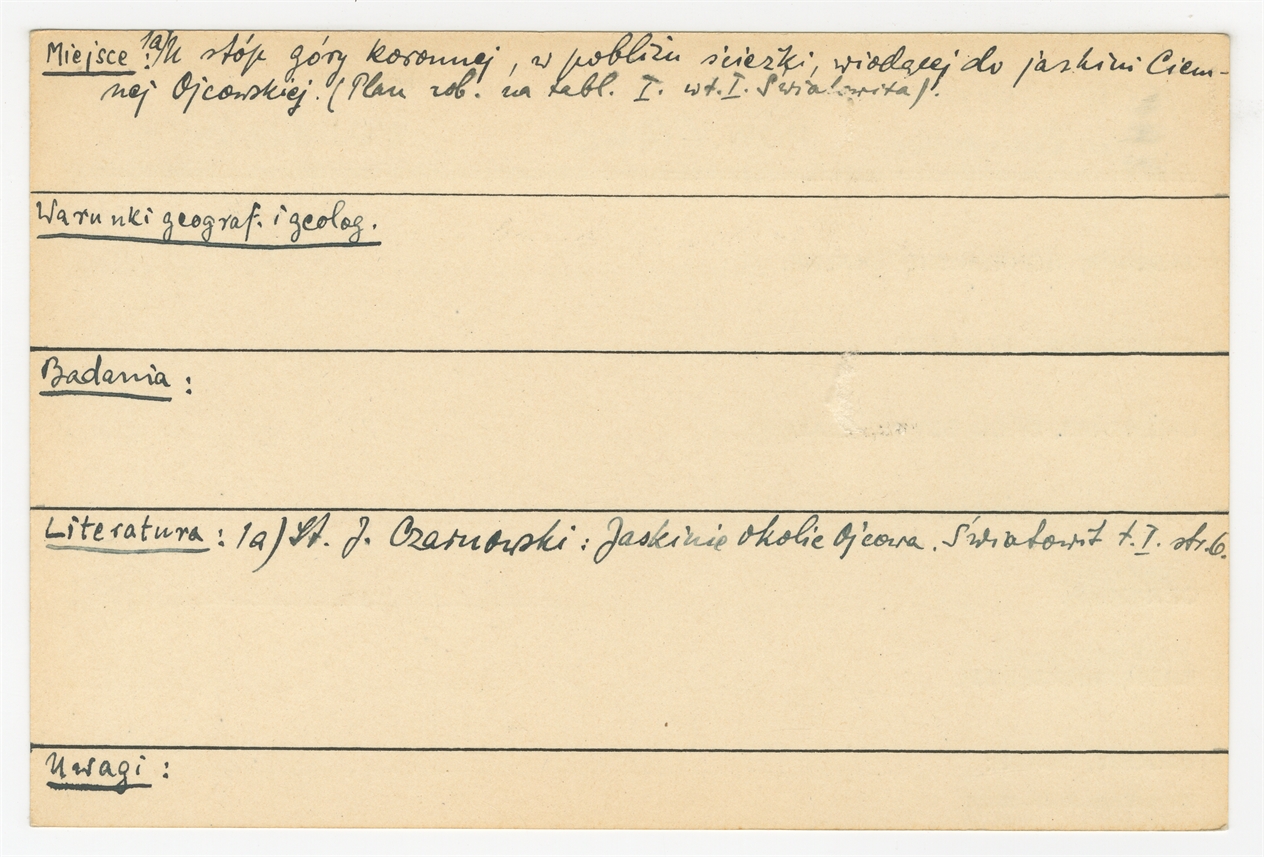 Miejsce: 1a) U stóp góry koronnej, w pobliżu ścieżki, wiodącej do jaskini Ciem-
nej Ojcowskiej. (Plan rob. na tabl. I. w t. I. Światowita).
Warunki geograf. i geolog.
Badania :
Literatura : 1a) St. J. Czarnowski : Jaskinie okolic Ojcowa. Światowit t. I. str. 6.
Uwagi :